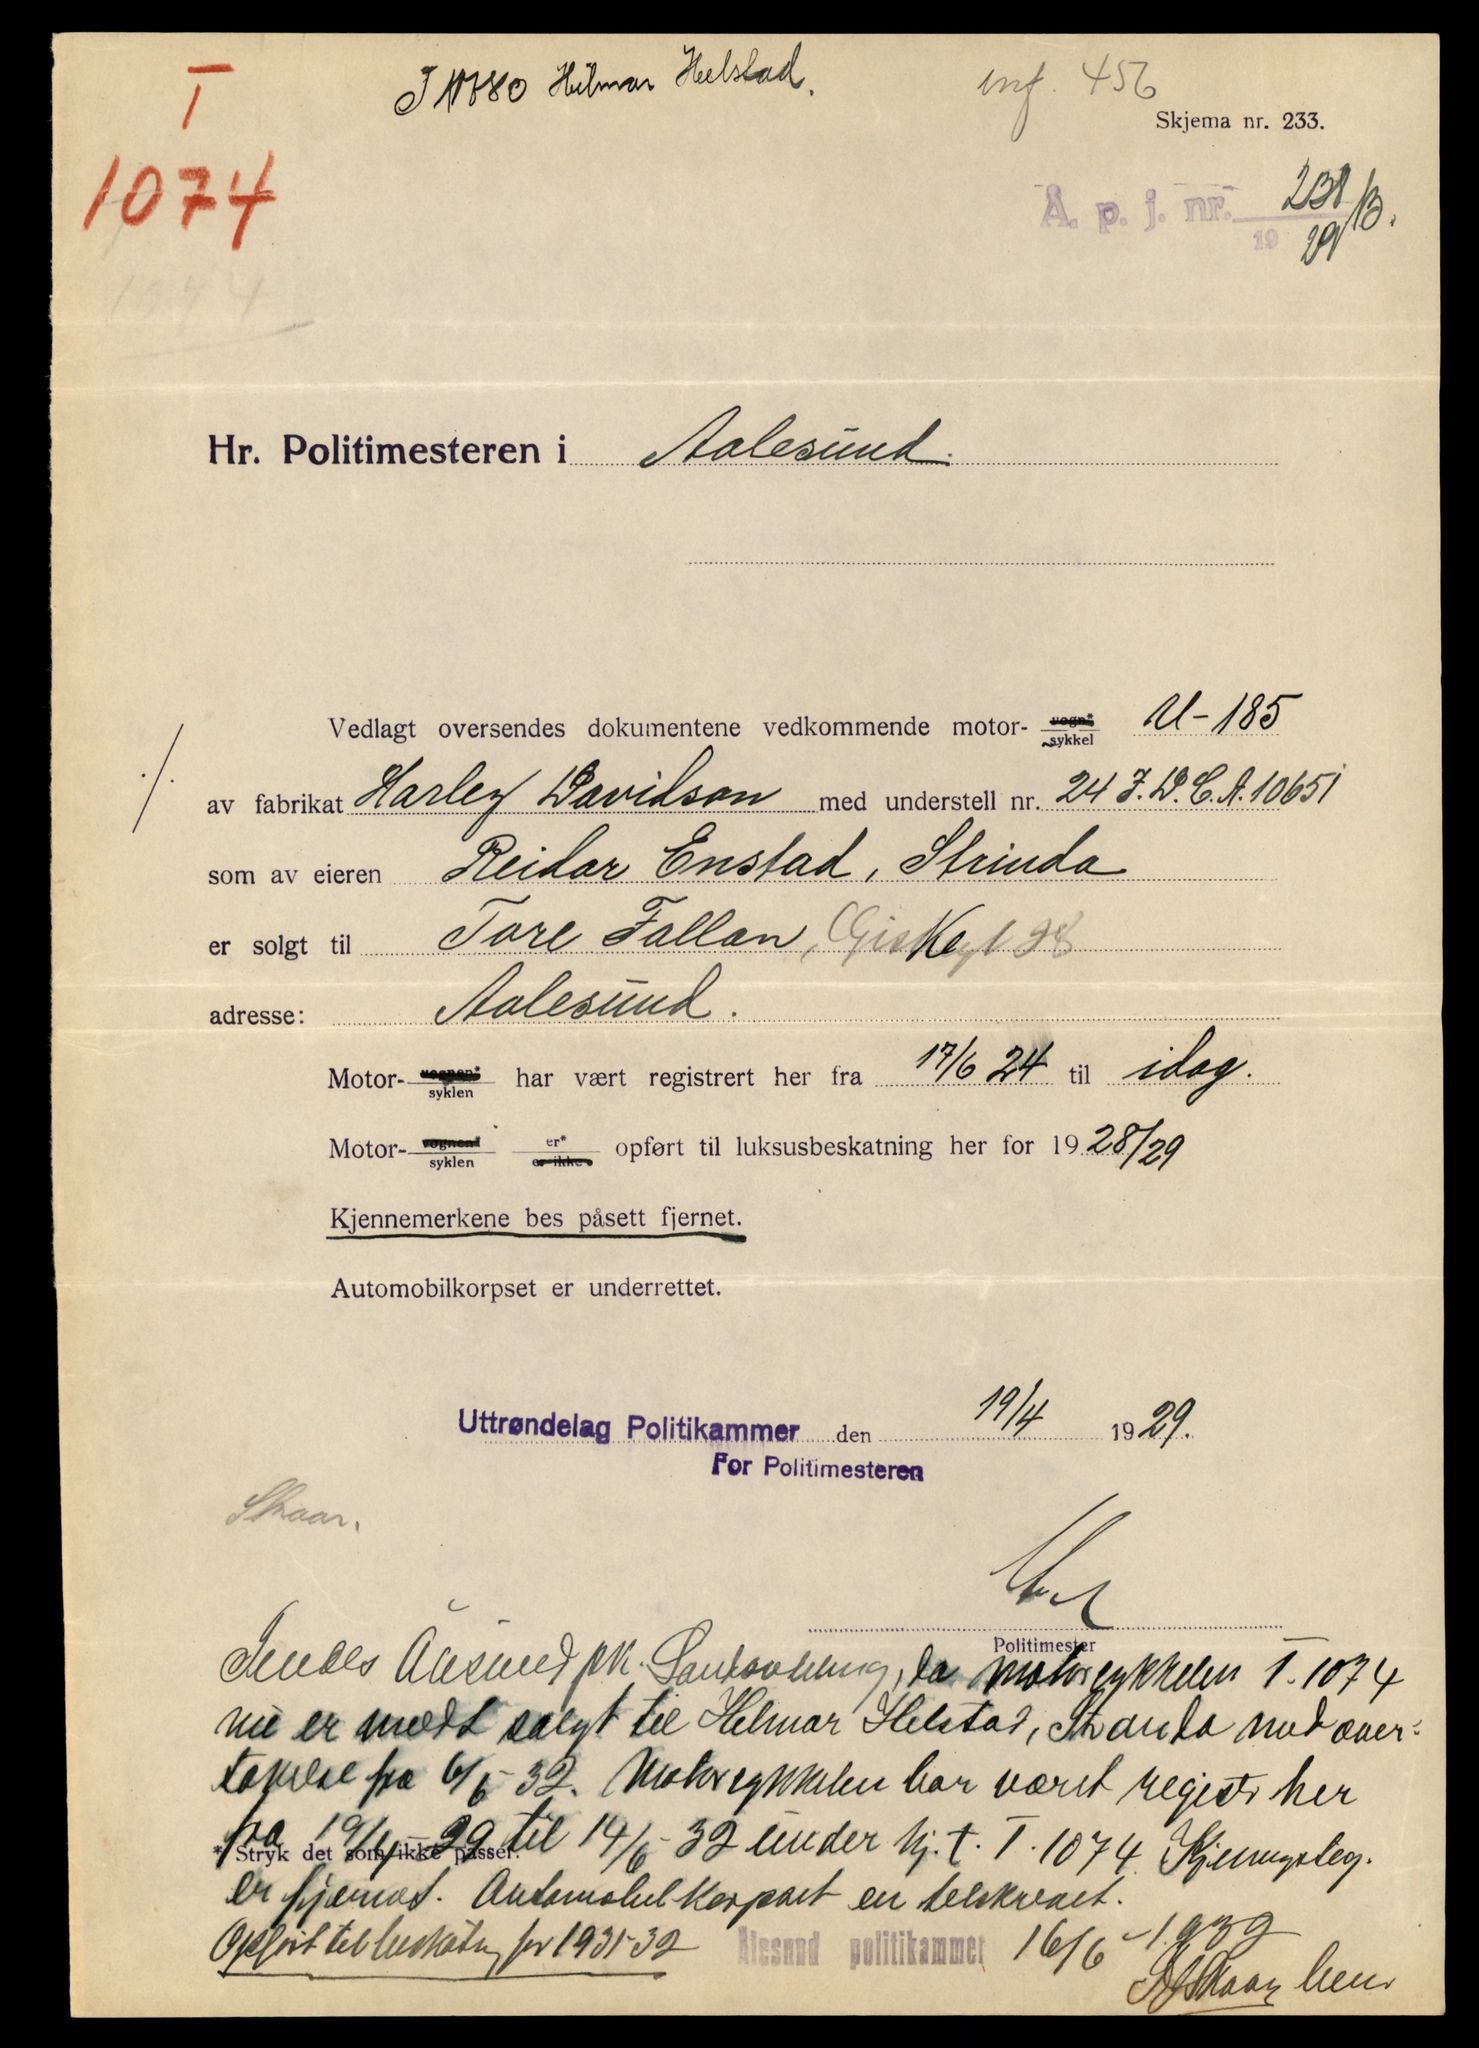 T
1074
Hilmar Helstad.
inf. 456
Skjema nr. 233.
Å. p. j. nr. 238/B.
19 29
1074
Hr. Politimesteren i Aalesund.
Vedlagt oversendes dokumentene vedkommende motor- vogn* sykkel U-185
av fabrikat Harley Davidson med understell nr. 24 J.D.C.A.10651
som av eieren Reidar Enstad, Strinda
er solgt til Tore Fallan, Giskegt 28
adresse: Aalesund.
Motor- vognen* syklen har vært registrert her fra 17/6 24 til idag.
Motor- vognen* syklen er* er ikke opført til luksusbeskatning her for 1928/29
Kjennemerkene bes påsett fjernet.
Automobilkorpset er underrettet.
Uttrøndelag Politikammer den 19/4 1929.
For Politimesteren
Skaar.
Politimester
Sendes Ålesund pk. , da motorsykkelen T-1074
nu er solgt til Hilmar Helstad, Stranda med over-
takelse fra 6/6-32. Motorsykkelen har været registr her
fra 19/4-29 til 14/6-32 under kj.t. T-1074 Kjenningsteg.
* Stryk det som ikke passer.
er fjernet. Automobilkorpset er tilskrevet.
Opført til beskatn for 1931-32
Ålesund politikammer 16/6-1932
Skaar